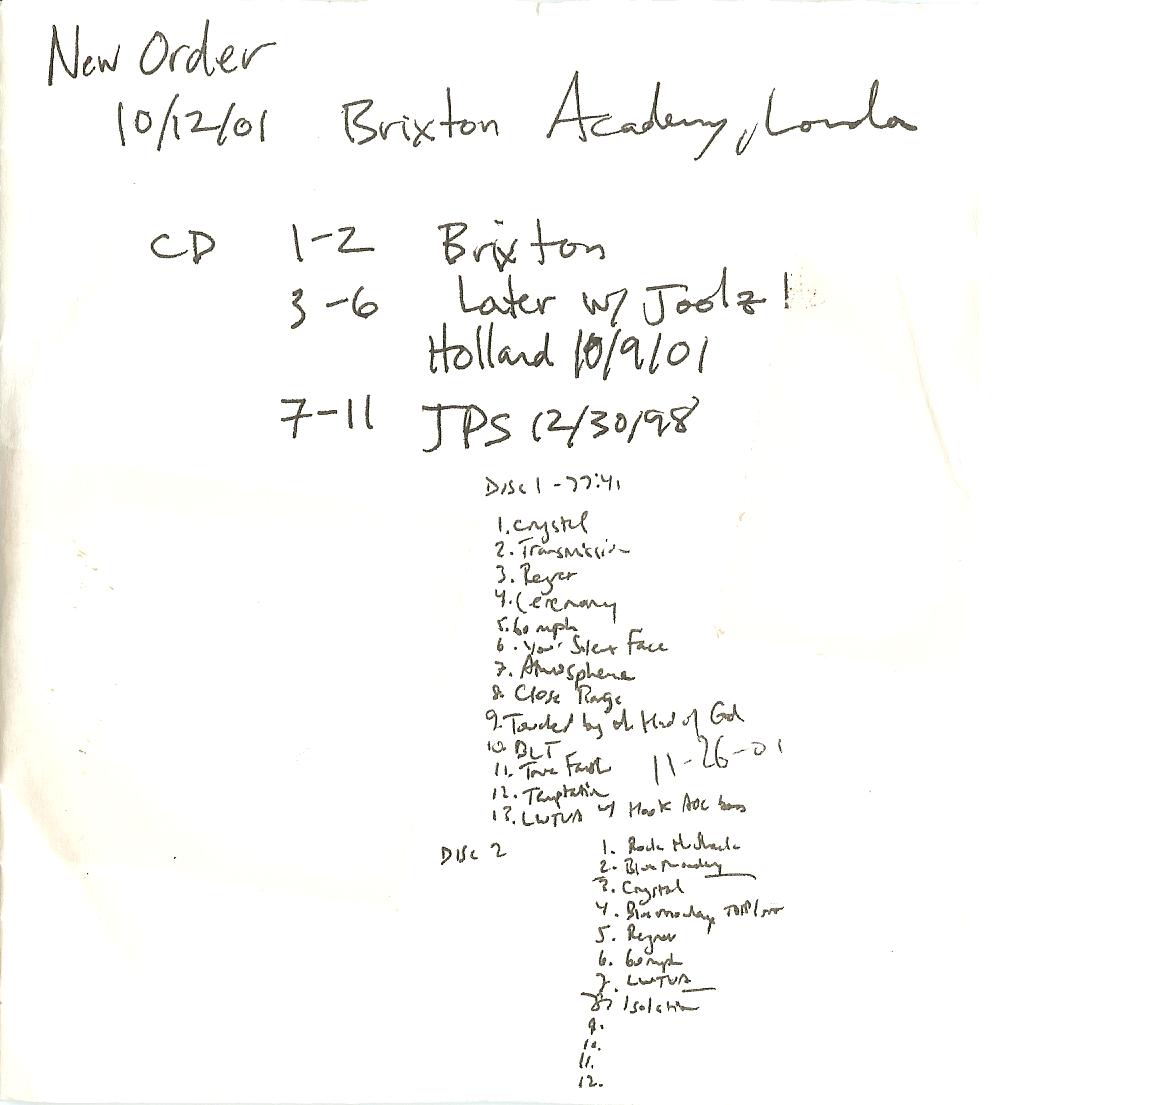 New Order
10/12/01 Brixton Academy, London
CD 1-2 Brixton
3-6 Later w/ Joolz!
Holland 10/9/01
7-11 JPS 12/30/98
Disc 1 - 77:41
1. Crystal
2. Transmission
3. Regret
4. Ceremony
5. 60 mph
6. Your Silent Face
7. Atmosphere
8. Close Range
9. Touched by th Hand of God
10. BLT
11. True Faith
11-26-01
12. Temptation
13. LWTUA w/ Hook
Disc 2
1. Rock the Shack
2. Blue Monday
3. Crystal
4. Blue Monday
5. Regret
6. 60 mph
7. LWTUA
8. Isolation
9.
10.
11.
12.